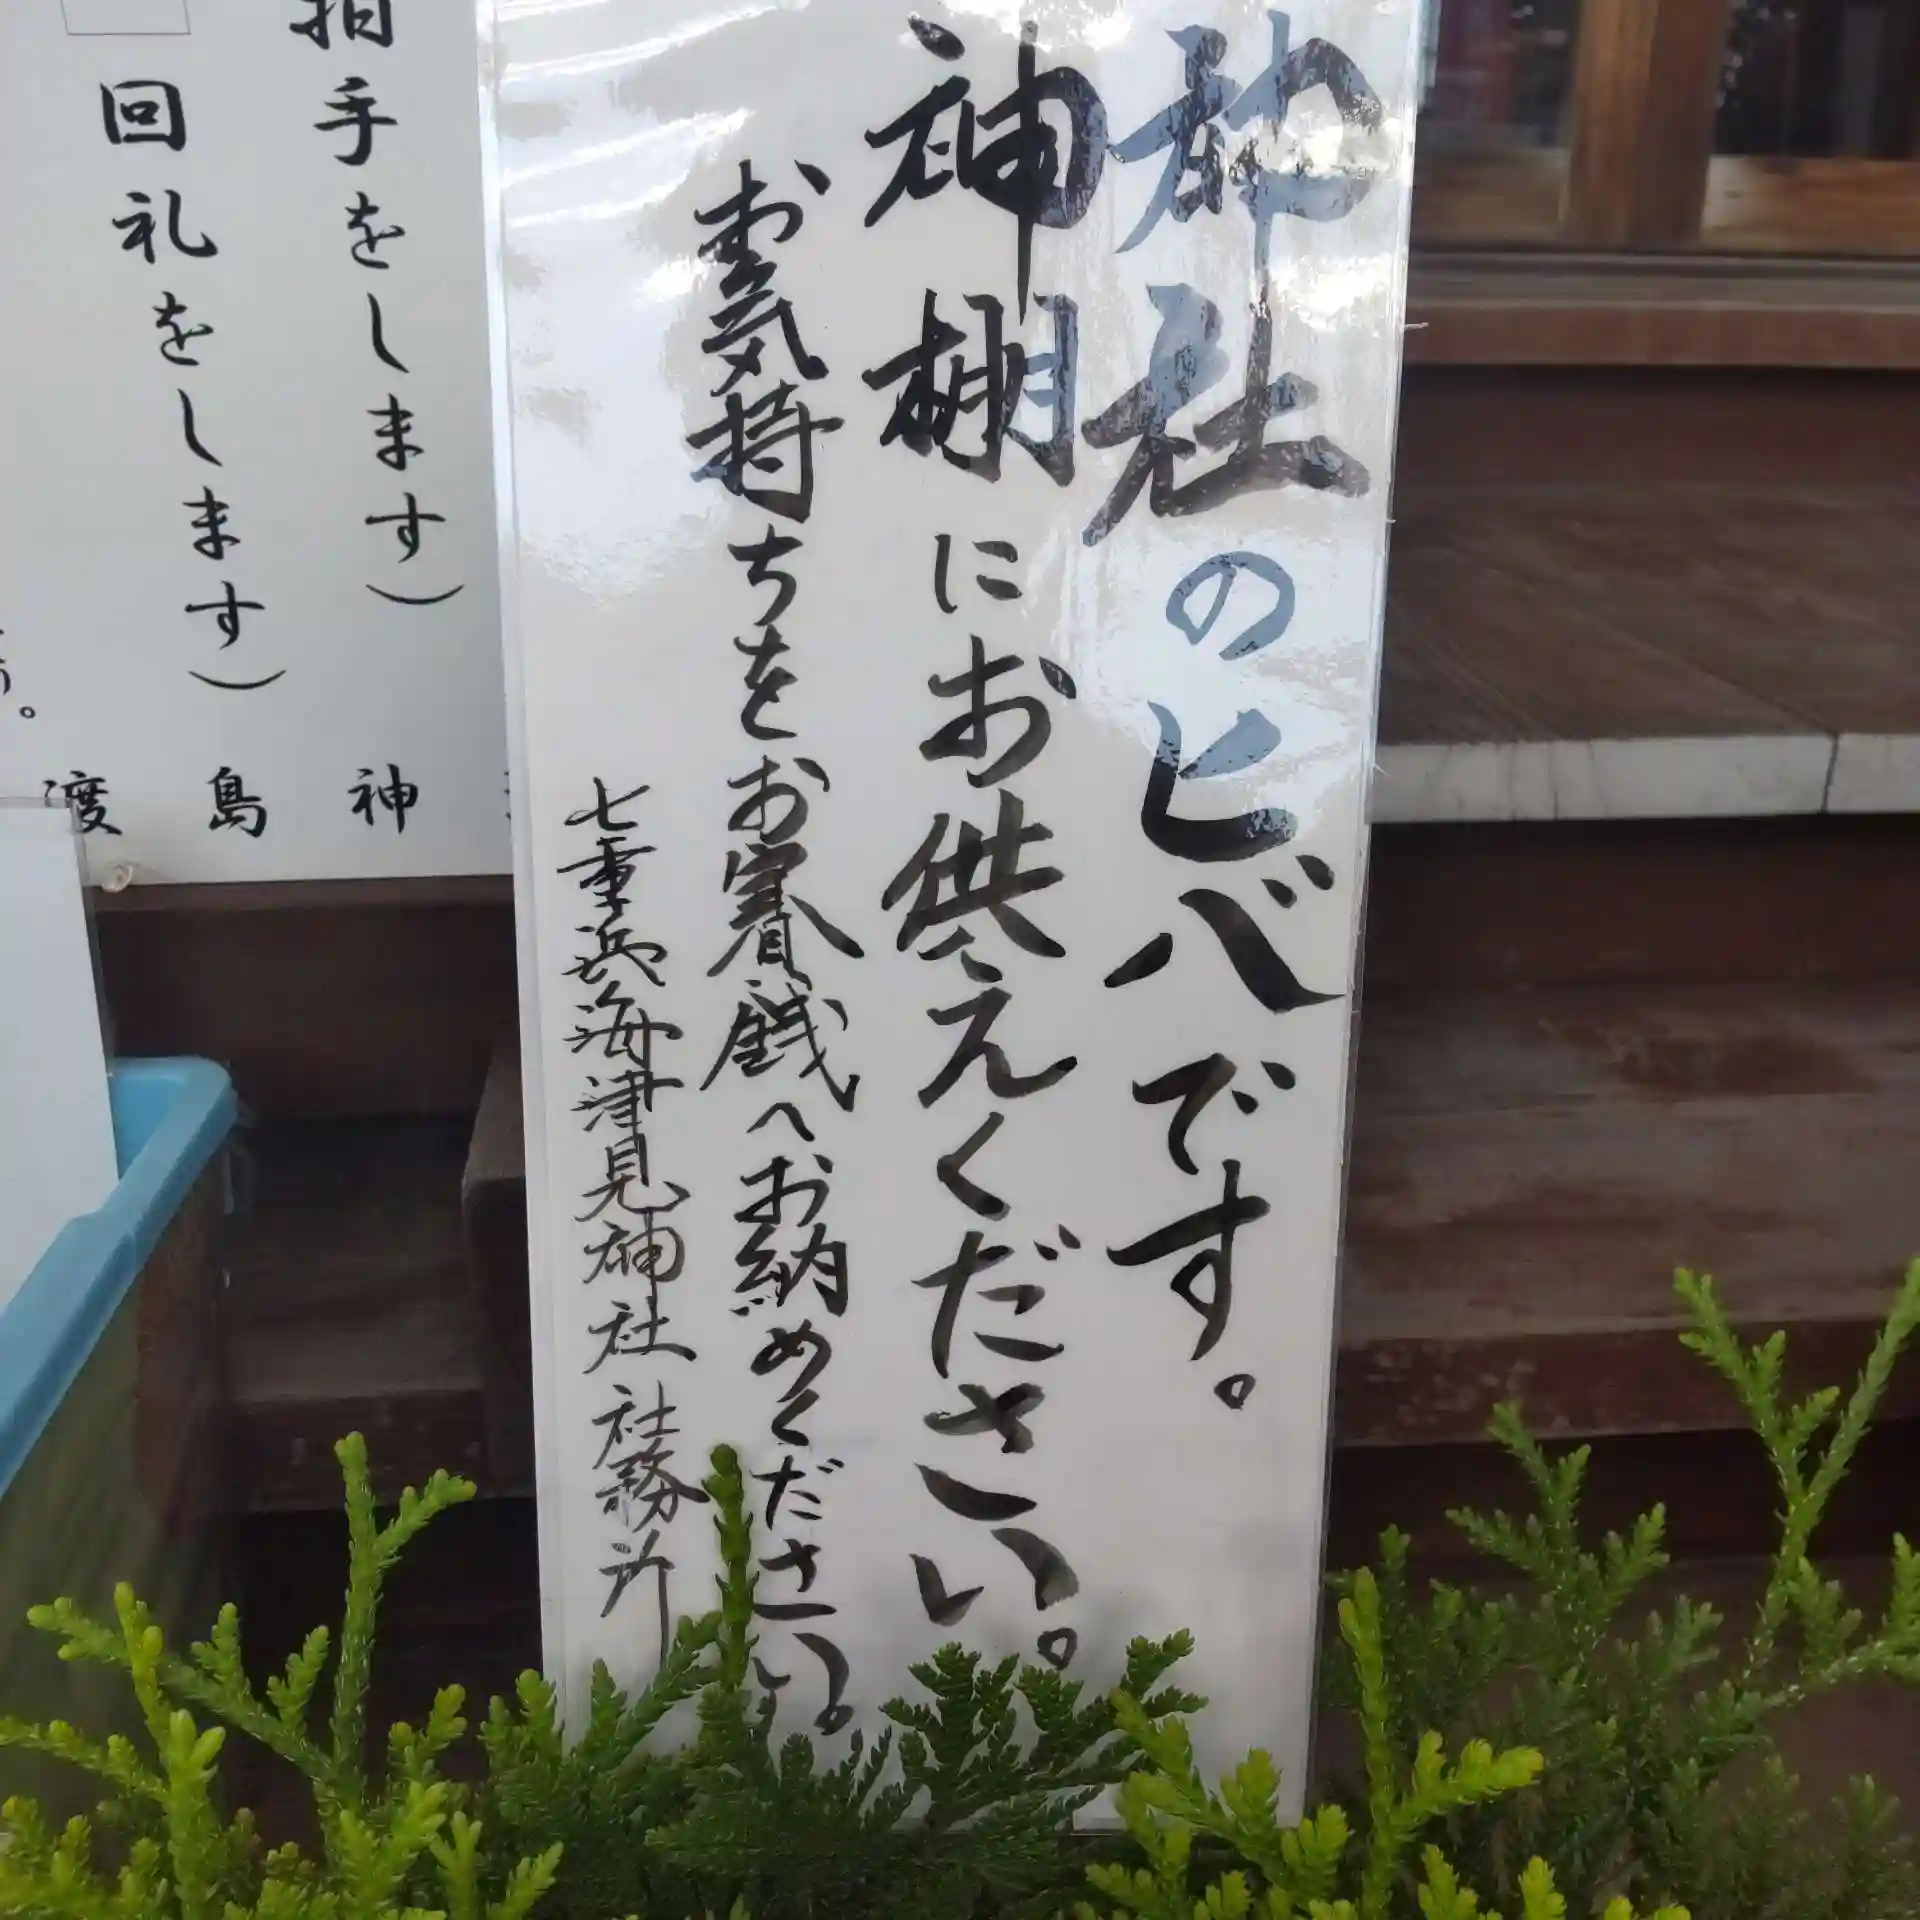 神社のヒバです。
神棚にお供えください。
お気持ちをお賽銭へお納めください。
七重浜海津見神社 社務所
拍手をします)
回礼をします)
渡島神